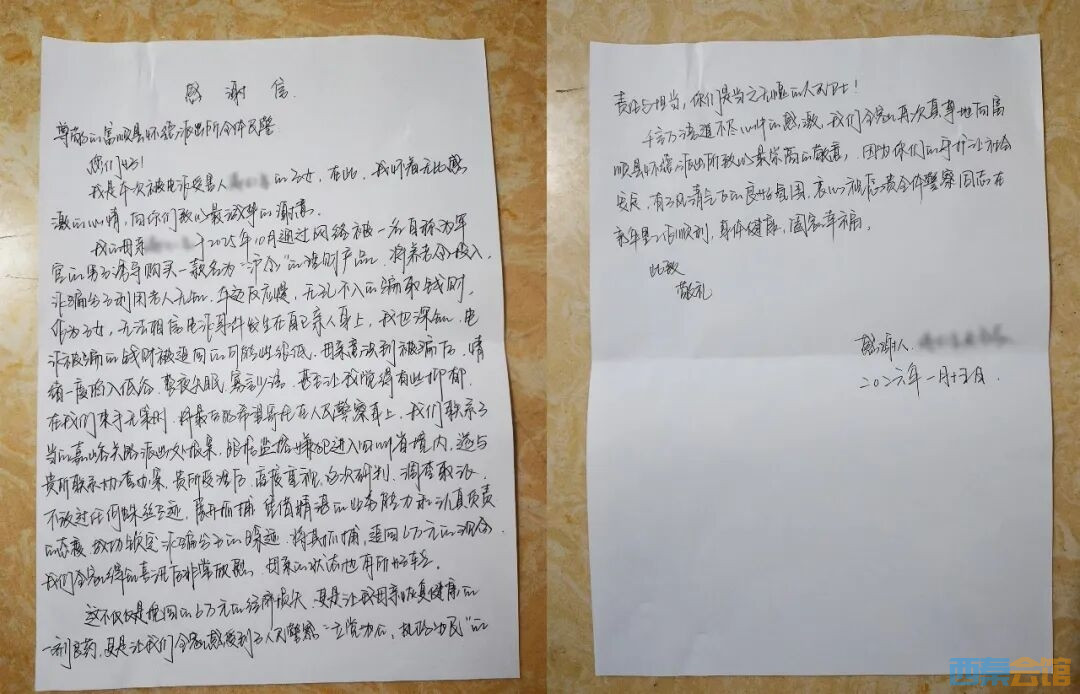 感谢信.
尊敬的富顺县怀德派出所全体民警
您们好!
我是本次被电诈受害人 的子女,在此,我怀着无比感
激的心情,向你们致以最诚挚的谢意。
我的母亲 于2025年10月通过网络被一名自称为军
官的男子诱导购买一款名为“沪金”的理财产品,将养老金投入,
诈骗分子利用老人无知、年迈反应慢,无孔不入的骗取钱财,
作为子女,无法相信电诈事件发生在自己亲人身上,我也深知,电
诈被骗的钱财被追回的可能性很低,母亲意识到被骗后,情
绪一度陷入低谷,整夜失眠,寡言少语,甚至让我觉得有些抑郁,
在我们束手无策时,将最后的希望寄托在人民警察身上,我们联系了
当地嘉峪关 派出处报案,
贵所联系协查办案,贵所受理后,高度重视,多次研判,调查取证,
不放过任何蛛丝马迹,展开抓捕,凭借精湛的业务能力和认真负责
的态度,成功锁定诈骗分子的踪迹,将其抓捕,追回6万元的现金,
我们全家得知喜讯后非常欣慰,母亲的状态也有所好转。
这不仅仅是挽回的6万元的经济损失,更是让我母亲恢复健康的
一剂良药,更是让我们全家感受到了人民警察“立党为公、执政为民”的
责任与担当,你们是当之无愧的人民卫士!
千言万语道不尽心中的感激,我们全家再次真挚地向富
顺县怀德派出所致以最崇高的敬意,因为你们的守护让社会
安定,有了风清气正的良好氛围,衷心祝愿贵全体警察同志在
来年里工作顺利,身体健康,阖家幸福。
此致
敬礼
感谢人
二〇二六年一月十五日.
西秦会馆